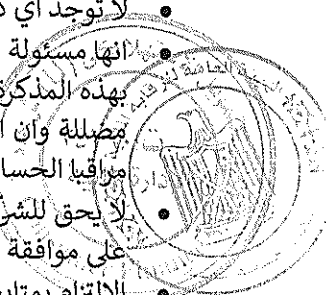 • لا توجد أي
• انها مسئولة
بهذه المذكرة
مضللة وان
مراقبا الحسا
• لا يحق للشر
على موافقة
العامة للرقابة